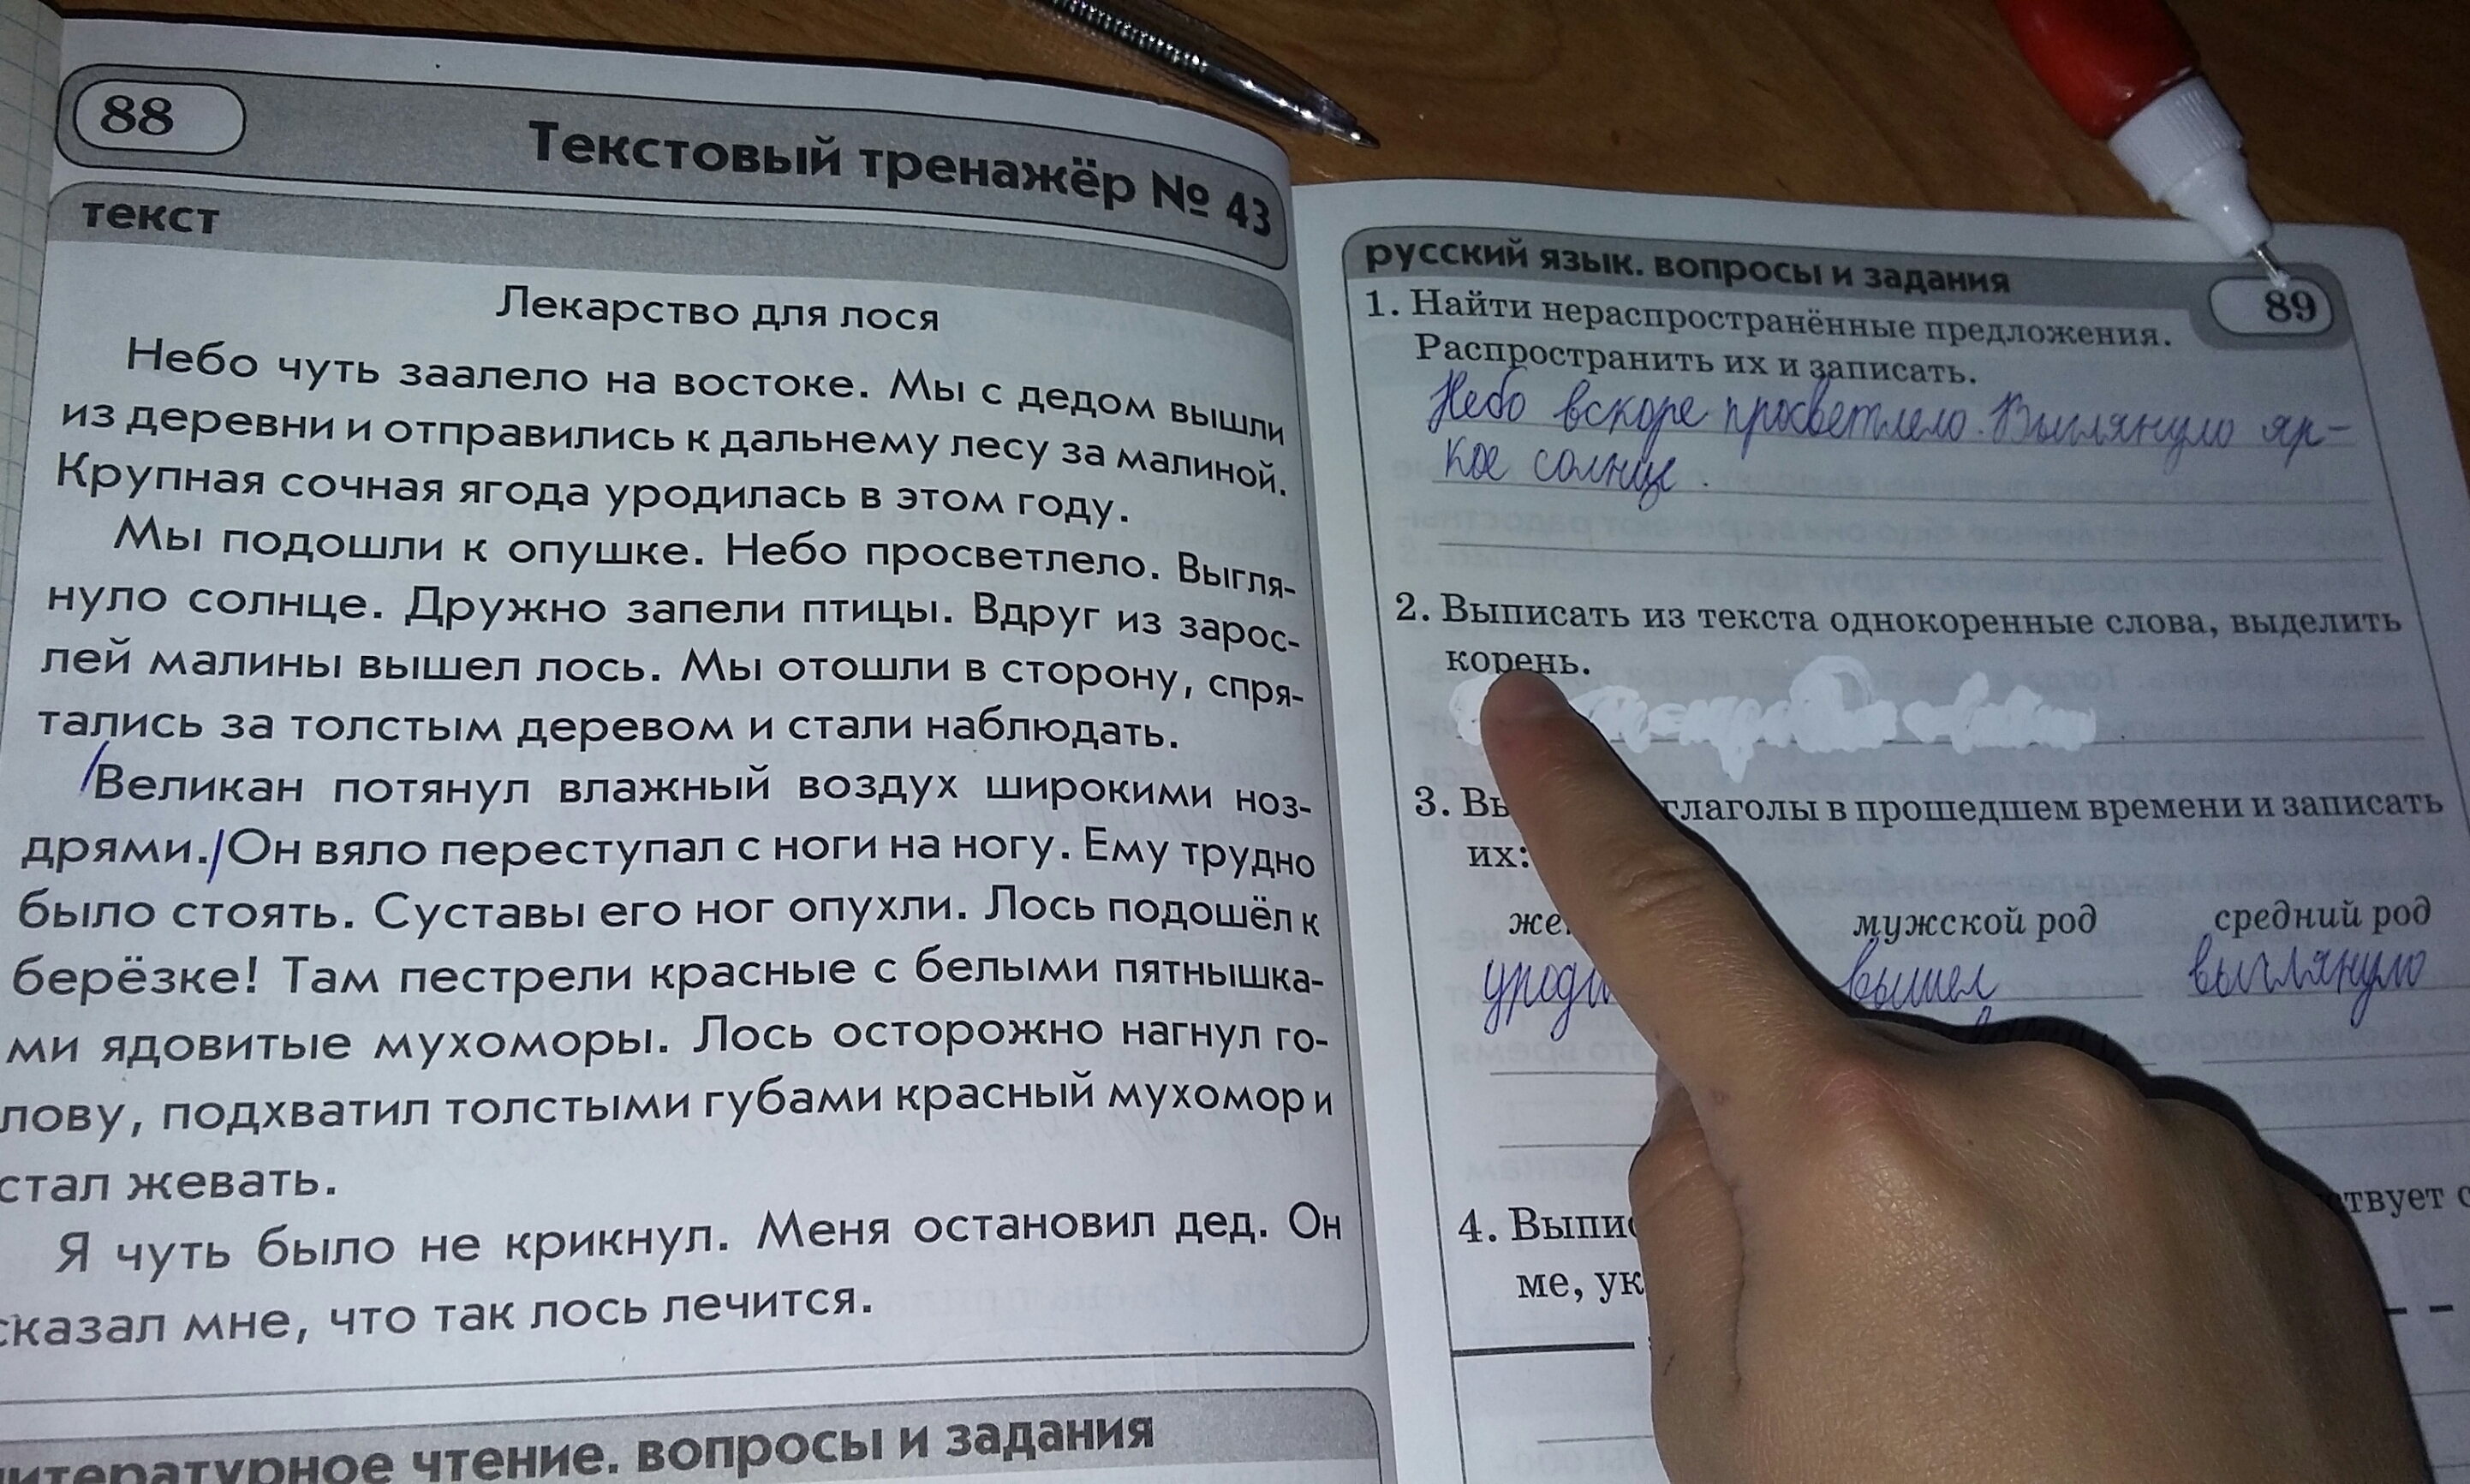 88
Текстовый тренажёр № 43
текст
Лекарство для лося
Небо чуть заалело на востоке. Мы с дедом вышли
из деревни и отправились к дальнему лесу за малиной.
Крупная сочная ягода уродилась в этом году.
Мы подошли к опушке. Небо просветлело. Выгля-
нуло солнце. Дружно запели птицы. Вдруг из зарос-
лей малины вышел лось. Мы отошли в сторону, спря-
тались за толстым деревом и стали наблюдать.
Великан потянул влажный воздух широкими ноз-
дрями. Он вяло переступал с ноги на ногу. Ему трудно
было стоять. Суставы его ног опухли. Лось подошёл к
берёзке! Там пестрели красные с белыми пятнышка-
ми ядовитые мухоморы. Лось осторожно нагнул го-
лову, подхватил толстыми губами красный мухомор и
стал жевать.
Я чуть было не крикнул. Меня остановил дед. Он
сказал мне, что так лось лечится.
литературное чтение. вопросы и задания
русский язык. вопросы и задания
89
1. Найти нераспространённые предложения.
Распространить их и записать.
Небо вскоре просветлело. Выглянуло яр-
кое солнце.
2. Выписать из текста однокоренные слова, выделить
корень.
3. Вы глаголы в прошедшем времени и записать
их:
же мужской род средний род
уроди вышел выглянуло
4. Выпис твует с
ме, ук